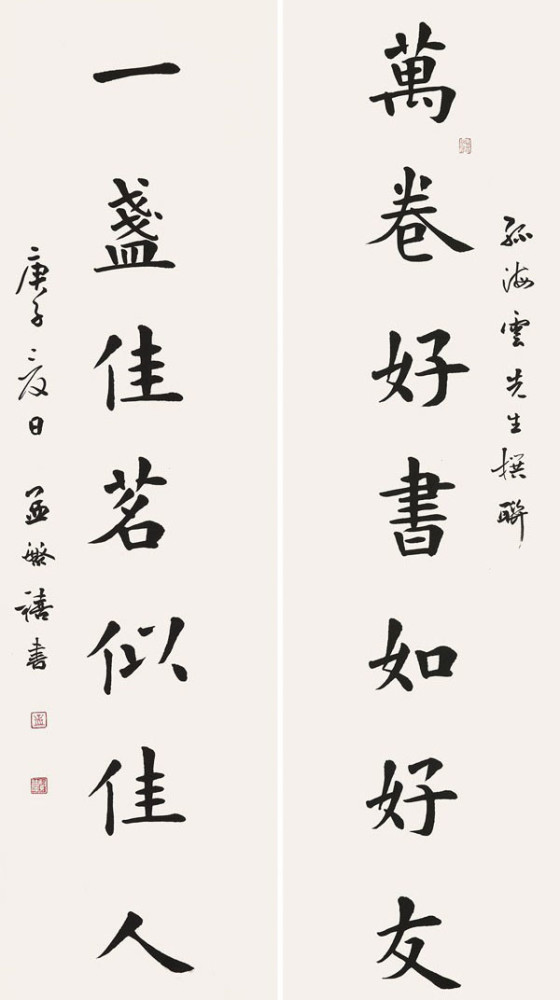 孫海雲先生撰聯
萬卷好書如好友
一盞佳茗似佳人
庚子夏日 孟繁禧書